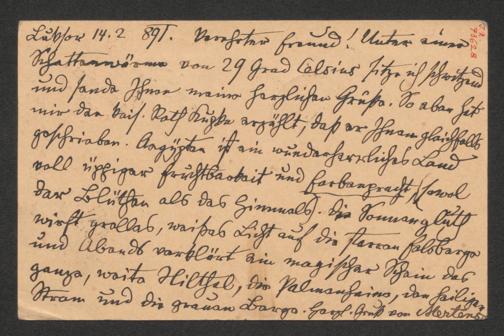 Luksor 14.2 891. Verehrter Freund! Unter einer
Schattenwärme von 29 Grad Celsius sitze ich schwitzend
und sende Ihnen meine herzlichen Grüße. So eben hat
mir der kais. Rath erzählt, daß er Ihnen gleichfalls
geschrieben. Aegypten ist ein wunderherrliches Land
voll üppiger Fruchtbarkeit und Farbenpracht (sowol
der Blüthen als des Himmels). Die Sonnengluth
wirft grelles, weißes Licht auf die starren Felsberge
und Abends verklärt ein magischer Schein das
ganze, weite Nilthal, die Palmenhaine, den heiligen
Strom und die grauen Berge. Herzl. Gruß von Mertens